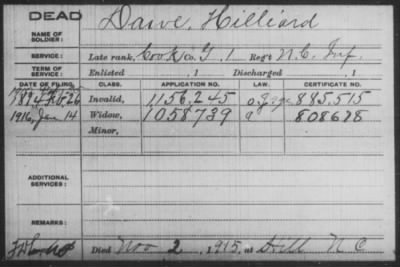 DEAD
NAME OF SOLDIER: Dawe, Hilliard
SERVICE: Late rank, Cook, Co. G, 1 Reg't N.C. Inf.
TERM OF SERVICE: Enlisted , 1 Discharged , 1
DATE OF FILING. CLASS. APPLICATION NO. LAW. CERTIFICATE NO.
1894 Feb 26 Invalid, 1156.245 885.515
1916, Jan 14 Widow, 1058739 808678
Minor,
ADDITIONAL SERVICES:
REMARKS:
Died Nov 2, 1915, at Hill N C